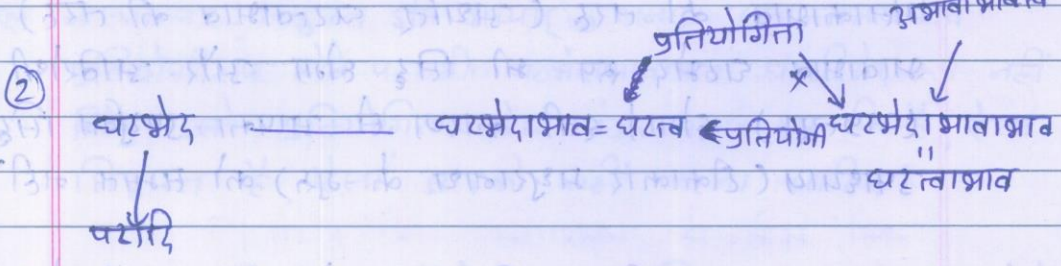 प्रतियोगिता
②
घटभेद घटभेदाभाव = घटत्व ← प्रतियोगी घटभेदाभावाभाव
"
घटत्वाभाव
पटादि